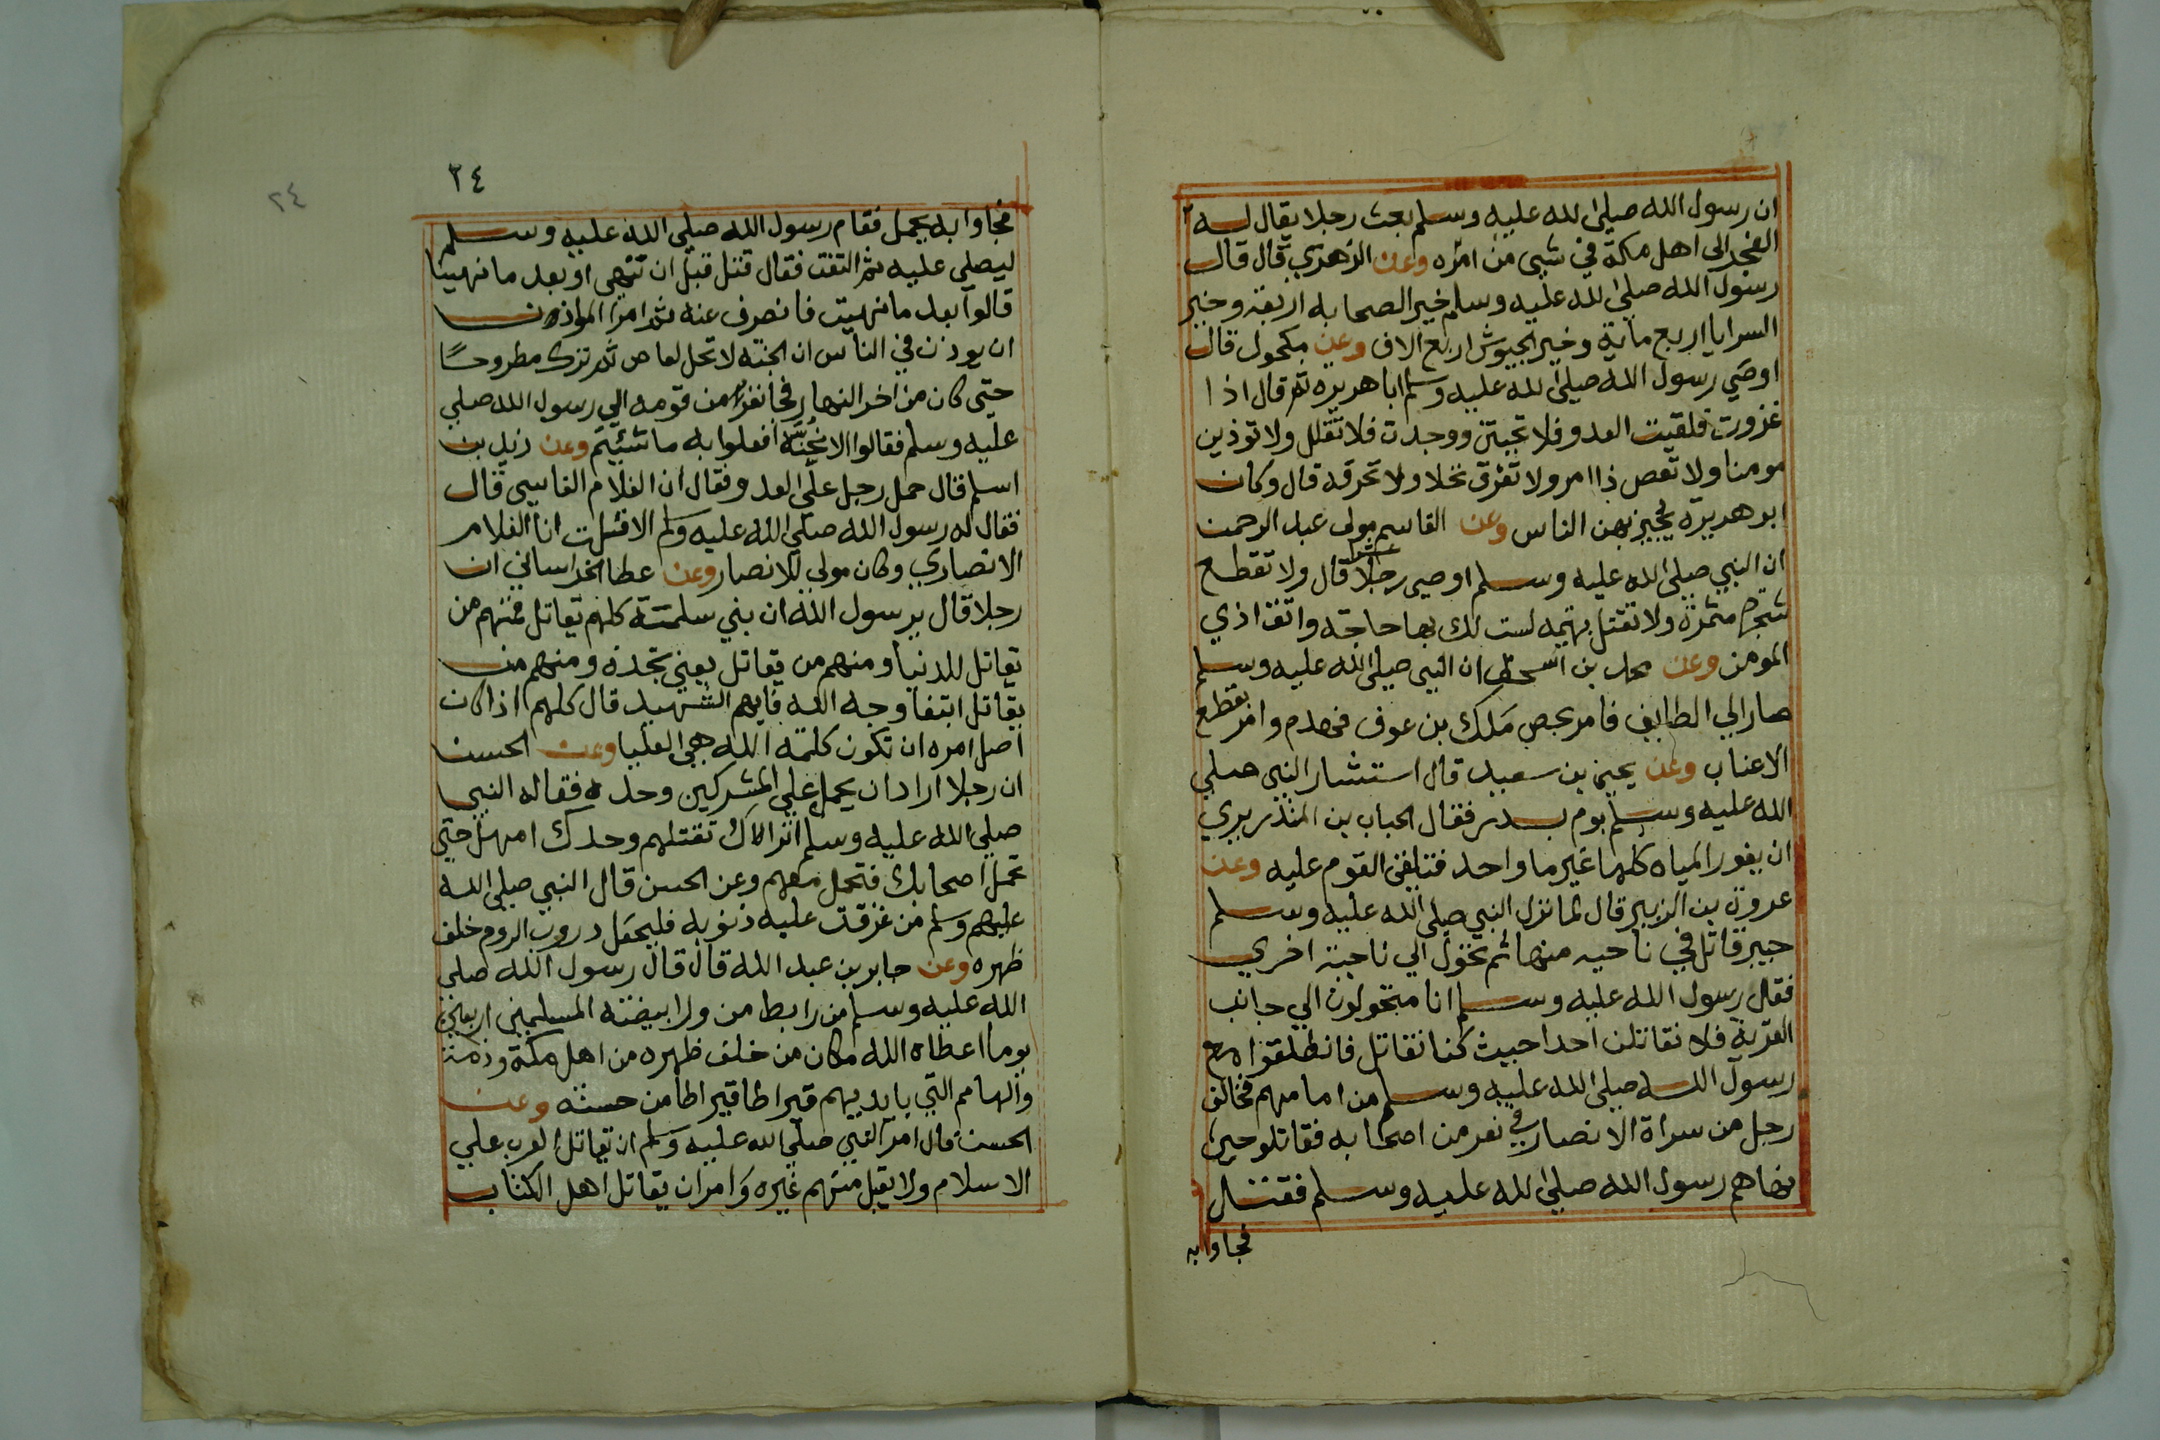 ان رسول الله صلى الله عليه وسلم بعث رجلا يقال له
الى اهل مكة في شيى من امره وعن الزهري قال قال
رسول الله صلى الله عليه وسلم خير الصحابه اربعة وخير
السرايا اربع ماية وخير الجيوش اربع الاف وعن مكحول قال
اوصي رسول الله صلى الله عليه وسلم ابا هريره ثم قال اذا
غزورت فلقيت العدو فلا تجبنن ووجدت فلا تغلل ولا توذين
مومنا ولا تعص ذا امر ولا تغرق نخلا ولا تحرقه قال وكان
ابو هريره يخبر بهن الناس وعن القاسم مولى عبد الرحمن
ان النبي صلى الله عليه وسلم اوصى رجلا قال ولا تقطع
شجرة مثمرة ولا تقتل بهيمه لست لك بها حاجة واتق اذي
المومن وعن محمد بن اسحق ان النبي صلى الله عليه وسلم
صار الي الطايف فامر بحصن ملك بن عوف فهدم وامر بقطع
الاعناب وعن يحيى بن سعيد قال استشار النبي صلي
الله عليه وسلم يوم بدر فقال الحباب بن المنذر يري
ان يغور المياه كلها غير ما واحد فنلقي القوم عليه وعن
عروة بن الزبير قال لما نزل النبي صلى الله عليه وسلم
خيبر قاتل في ناحيه منها ثم تحول الي ناحية اخري
فقال رسول الله عليه وسلم انا متحولون الي جانب
القرية فلا تقاتلن احدا حيث كنا نقاتل فانطلقوا مع
رسول الله صلى الله عليه وسلم من امامهم فخالف
رجل من سراة الانصار في نفر من اصحابه فقاتلو حين
نهاهم رسول الله صلى الله عليه وسلم فقتل
فجاوا به
٢٤
٢٤
فجاوا به يحمل فقام رسول الله صلي الله عليه وسلم
ليصلي عليه ثم التفت فقال قتل قبل ان تنهي او بعد ما نهينا
قالوا بعد ما نهيت فانصرف عنه ثم امر الموذن
ان يوذن في الناس ان الجنه لا تحل لعاص ثم ترك مطروحًا
حتى كان من اخر النهار فجا نفر من قومه الي رسول الله صلي
عليه وسلم فقالوا الا نجنه افعلوا به ما شئيتم وعن زيد بن
اسلم قال حمل رجل علي العدو فقال ان الغلام الفاسي قال
فقال له رسول الله صلي الله عليه وسلم الا قلت انا الغلام
الانصاري وكان مولي للانصار وعن عطا الخراساني ان
رجلا قال يرسول الله ان بني سلمة كلهم يقاتل فمنهم من
يقاتل للدنيا ومنهم من يقاتل يعني نجدة ومنهم من
يقاتل ابتغا وجه الله فايهم الشهيد قال كلهم اذا كان
اصل امره ان تكون كلمة الله هي العليا وعن الحسن
ان رجلا اراد ان يحمل علي المشركين وحده فقاله النبي
صلي الله عليه وسلم اتراك تقتلهم وحدك امهل حتي
تحمل اصحابك فتحمل معهم وعن الحسن قال النبي صلي الله
عليهم وسلم من غرقت عليه ذنوبه فليجعل دروب الروم خلف
ظهره وعن جابر بن عبد الله قال قال رسول الله صلي
الله عليه وسلم من رابط من ورا بيضة المسلمين اربعين
يوما اعطاه الله مكان من خلف ظهره من اهل مكة وذمة
والهامم التي بايديهم قيراطا قيراطا من حسنه وعن
الحسن قال امر النبي صلي الله عليه وسلم ان يقاتل العرب علي
الاسلام ولا يقبل منهم غيره وامر ان يقاتل اهل الكتاب